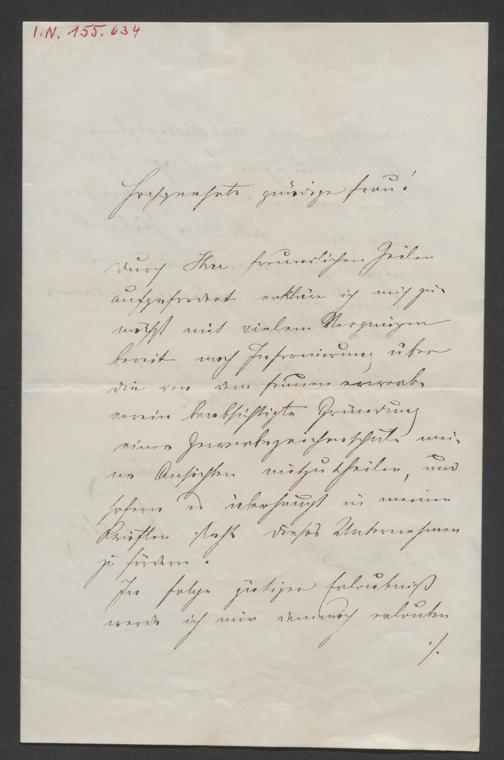 I.N. 155.634
Hochgeehrte gnädige Frau!
Durch Ihre freundlichen Zeilen
aufgefordert erkläre ich mich zu-
nächst mit vielem Vergnügen
bereit nach Informirung über
die von dem Frauen erwerb-
verein beabsichtigte Gründung
einer Gewerbezeichenschule mei-
ne Ansichten mitzutheilen, und
sofern es überhaupt in meinen
Kräften steht dieses Unternehmen
zu fördern.
In folge gütiger Erlaubniß
werde ich mir demnach erlauben
./.